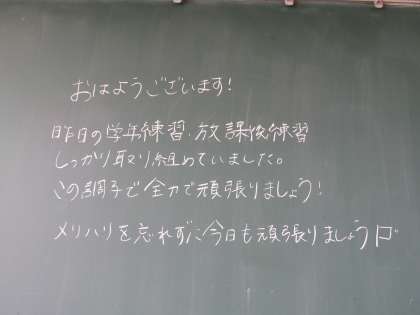 おはようございます!
昨日の学年練習、放課後練習
しっかり取り組めていました。
この調子で全力で頑張りましょう!
メリハリを忘れずに今日も頑張りましょう